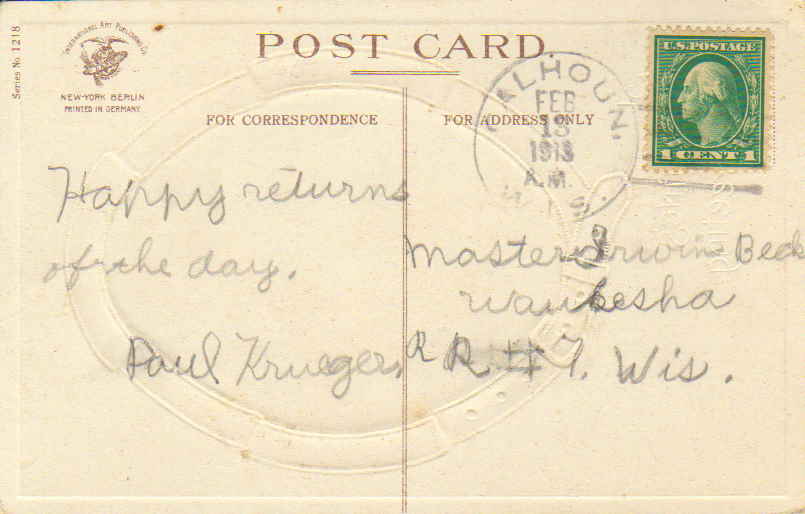 Series No. 1218
INTERNATIONAL ART PUBLISHING CO.
NEW-YORK BERLIN
PRINTED IN GERMANY
POST CARD.
FOR CORRESPONDENCE
FOR ADDRESS ONLY
CALHOUN.
FEB
13
1913
A.M.
WIS.
U.S. POSTAGE
1 CENT 1
Happy returns
of the day.
Paul Krueger.
Master Irwin Beck
Waukesha
R R #7. Wis.